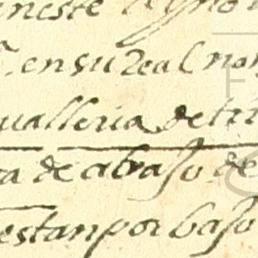 neste
en su Real no
ualleria de tr
a de abaso de
estan por baso